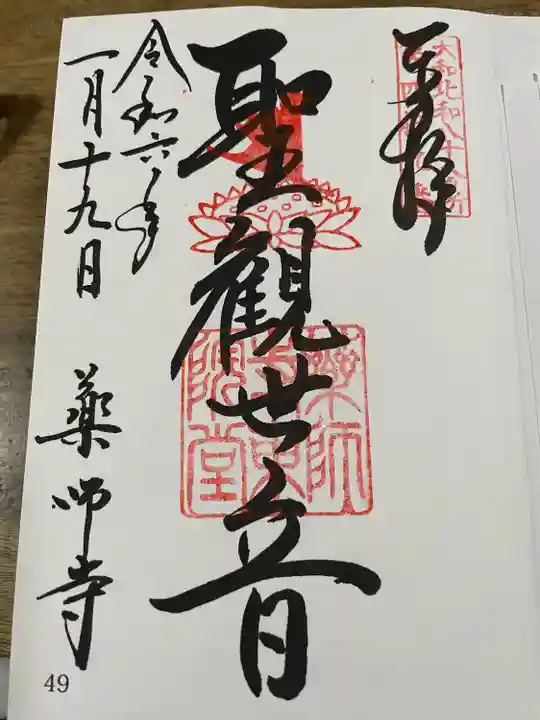 奉拝
大和北和八十八ヶ所
聖觀世音
薬師寺東院堂
令和六年
一月十九日
薬師寺
49